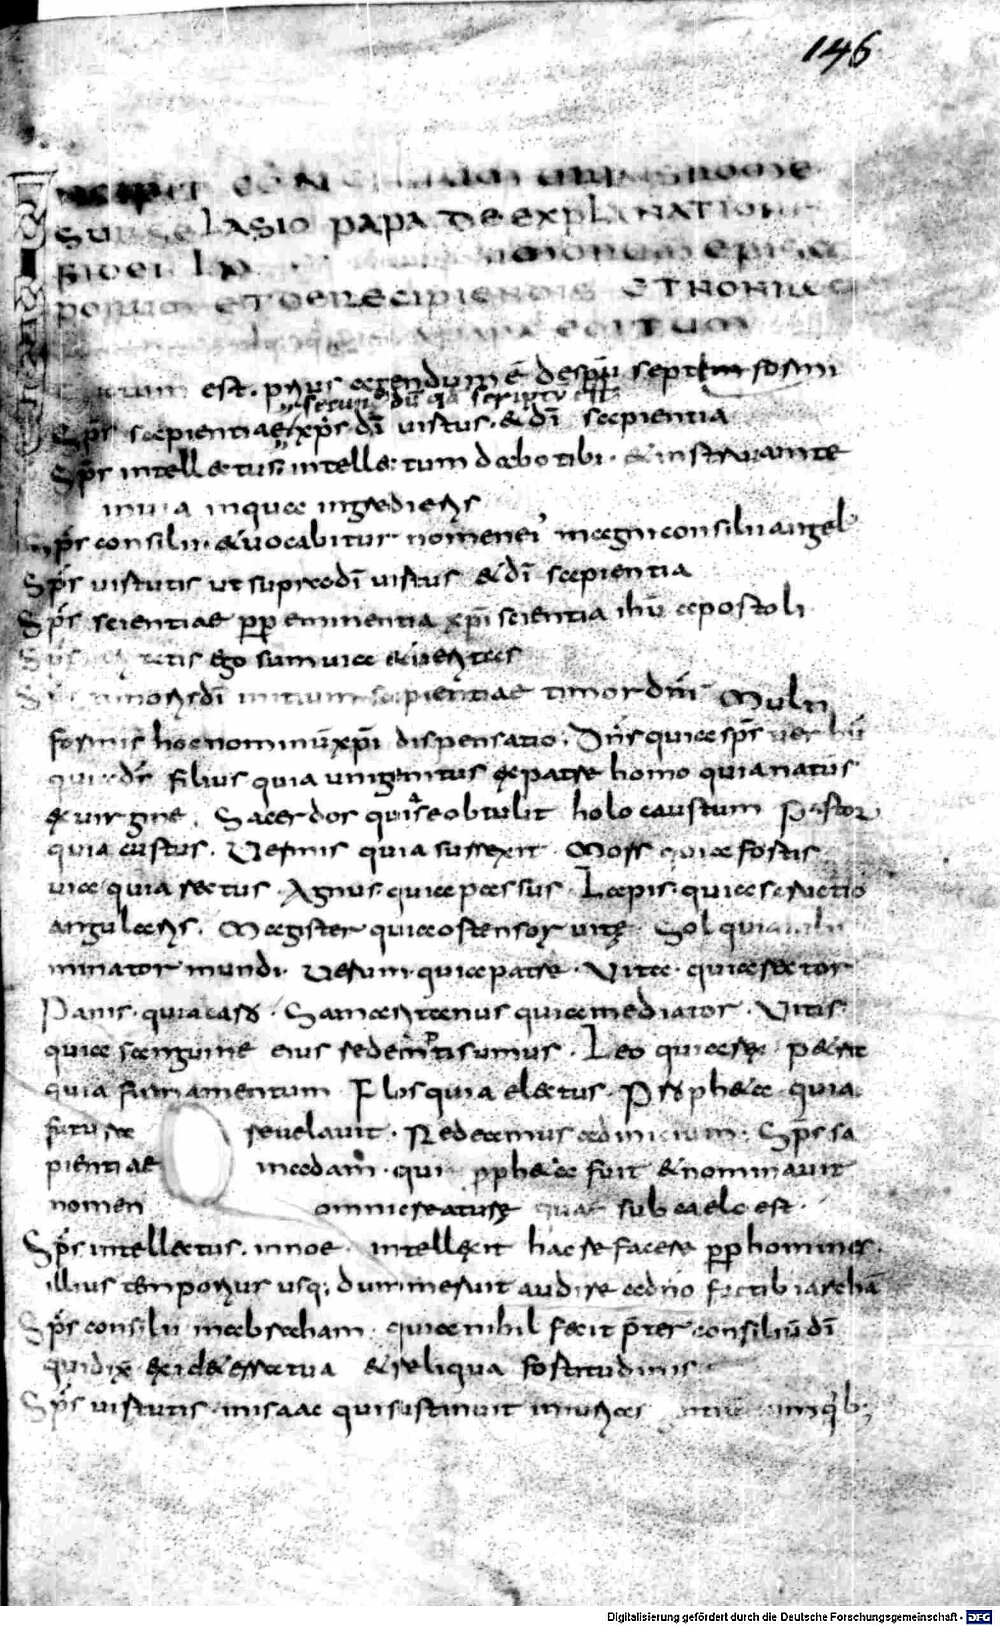 146
INCIPIT CONCILIUM URBIS ROME
SUB GELASIO PAPA DE EXPLANATIONE
FIDEI
PORUM ET DE RECIPIENDIS ET NON REC
EDITUM
est. prius agendum ē de spū septem formi
secun dū qđ scriptū est
Sps sapientiae xps dī virtus. & dī sapientia
Sps intellectus intellectum dabo tibi. & instruam te
in via in qua ingredieris
Sps consilii. & vocabitur nomen ei' magni consilii angel'
Sps virtutis ut supra dī virtus & dī sapientia
Sps scientiae pp eminentia xpi scientia ihu apostoli
Sps ego sum via & veritas
Sps timoris dī initium sapientiae timor dni Multi
formis hoc nominū xpi dispensatio. Dns quia sps verbū
quia ds Filius quia unigenitus ex patre homo quia natus
ex virgine. Sacerdos quia se obtulit holocaustum Pastor
quia custus. Vermis quia surrexit. Mons quia fortis
via quia rectus. Agnus. quia passus. Lapis. quia
angularis. Magister quia ostensor vitę. Sol quia illu
minator mundi. Verum. quia patre. Vita. quia
Panis. quia caro. Samaritanus quia mediator. Vitis
quia sanguine eius redempti sumus. Leo quia rex. petra
quia firmamentum Flos quia electus. Propheta quia
futura revelavit. Redeamus ad inicium. Sps sa
pientiae in adam. qui ppheta fuit & nominavit
nomen omni creaturę quae sub caelo est.
Sps intellectus. in noe. intellexit hac re facere pp homines
illius temporis usq; dum meruit audire a dño fac tibi archā
Sps consilii in abraham. quia nihil fecit pter consiliū dī
qui dix exi de terra tua & reliqua fortitudinis
Sps virtutis. in isaac qui sustinuit iniurias
Digitalisierung gefördert durch die Deutsche Forschungsgemeinschaft - DFG